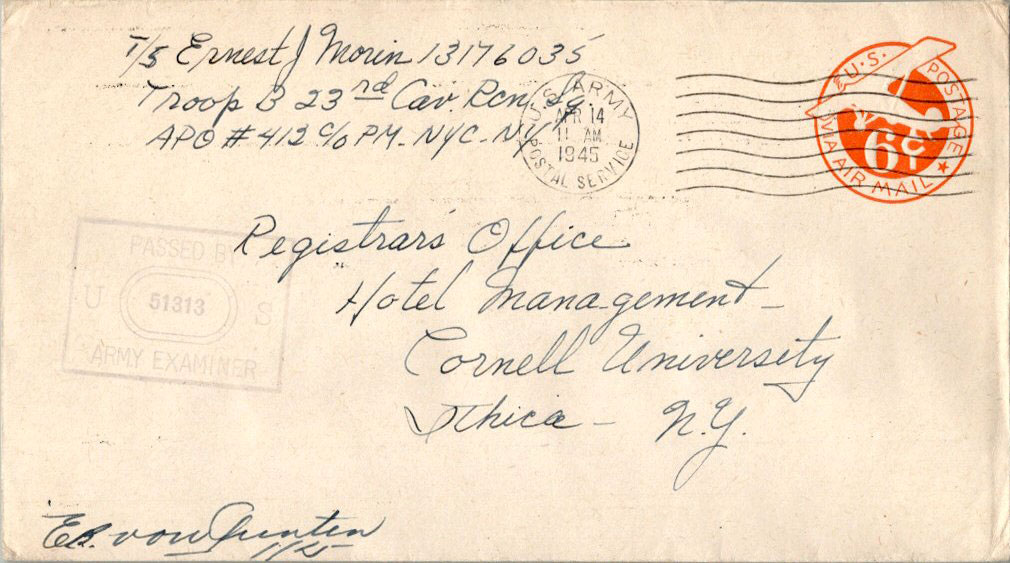 T/5 Ernest J Morin 13176035
Troop B 23rd Cav. Rcn. Sq.
APO #412 c/o PM. NYC. NY
U.S. ARMY
APR 14
11 AM
1945
POSTAL SERVICE
U.S. POSTAGE
6¢
VIA AIR MAIL
Registrar's Office
Hotel Management
Cornell University
Ithica - N.Y.
PASSED BY
U 51313 S
ARMY EXAMINER